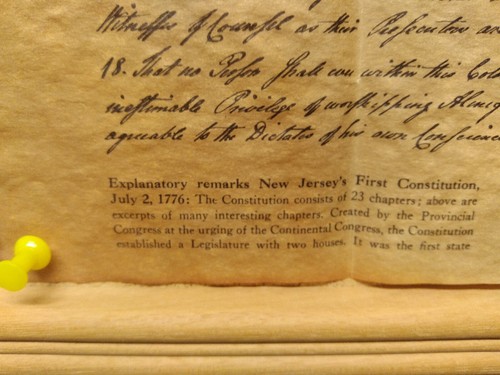 Witnesses of Counsel as their Prosecutors are
18. That no Person shall ever within this Colo
inestimable Privilege of worshipping Almig
agreable to the Dictates of his own Conscienc
Explanatory remarks New Jersey's First Constitution,
July 2, 1776: The Constitution consists of 23 chapters; above are
excerpts of many interesting chapters. Created by the Provincial
Congress at the urging of the Continental Congress, the Constitution
established a Legislature with two houses. It was the first state